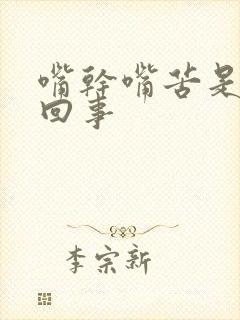 嘴幹嘴苦是
回事
李宗新